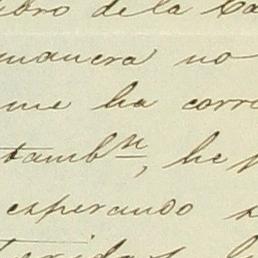 bro de la Ca
manera no
me ha corre
tambn, he p
esperando s